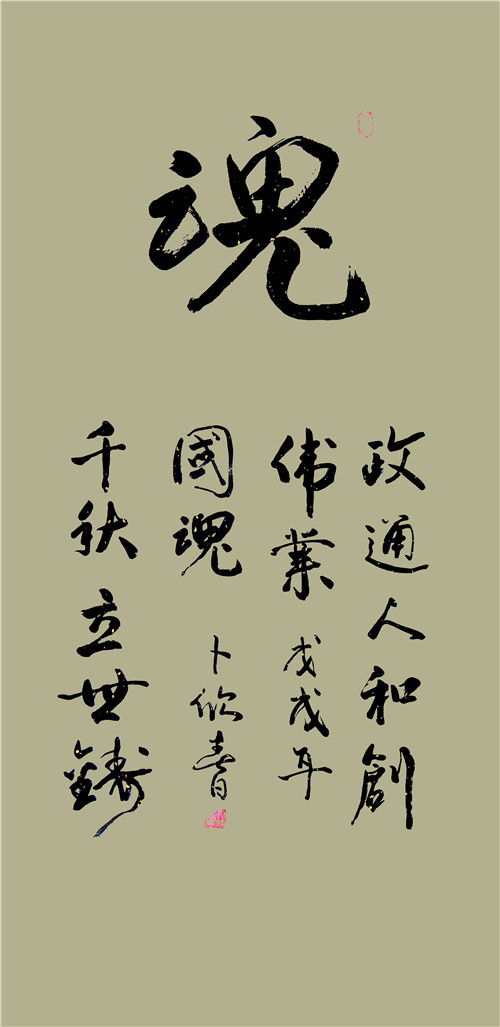 魂
政通人和創
伟業
戊戌年
千秋立世鑄
國魂
卜 春